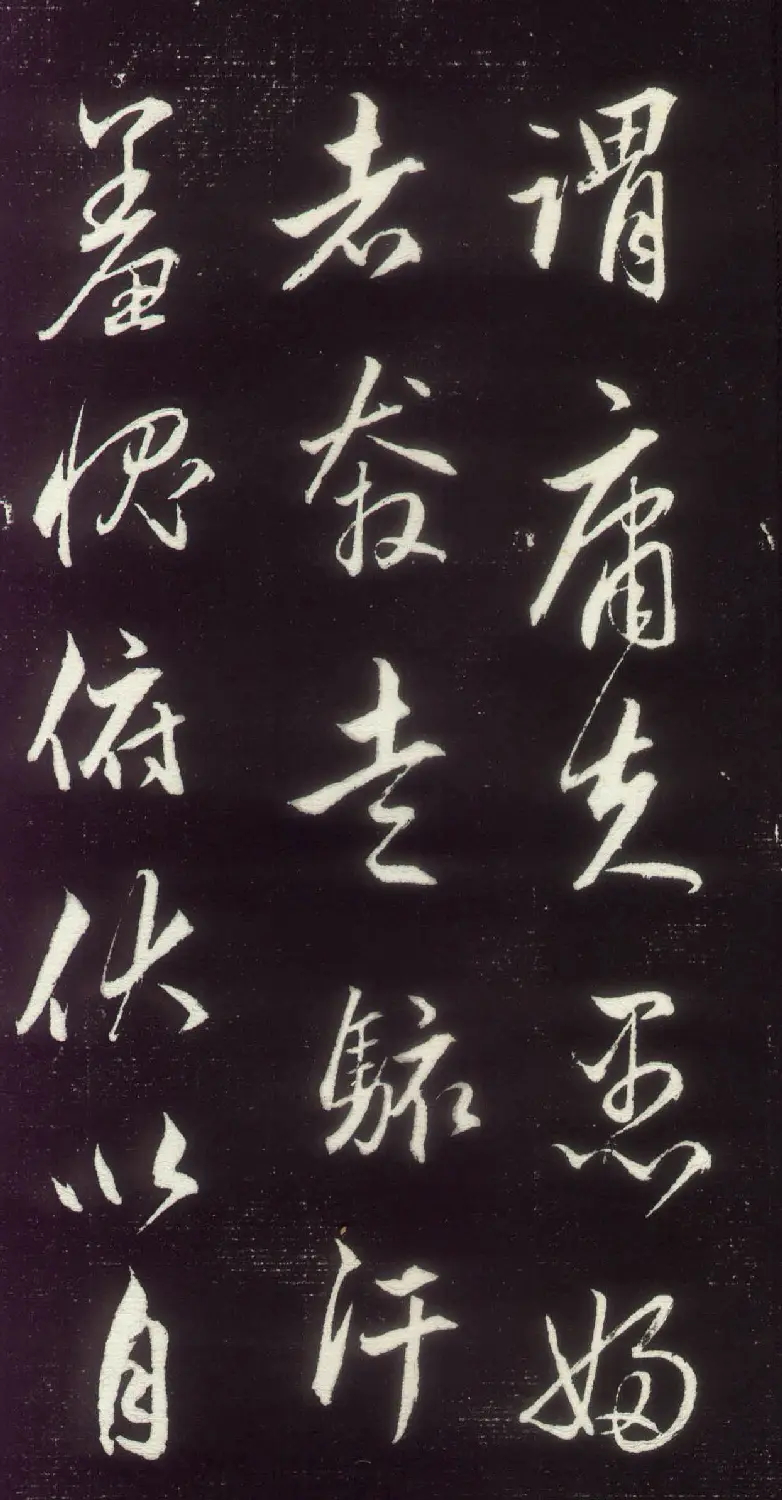 謂庸夫愚婦
者奔走駭汗
羞愧俯伏以自